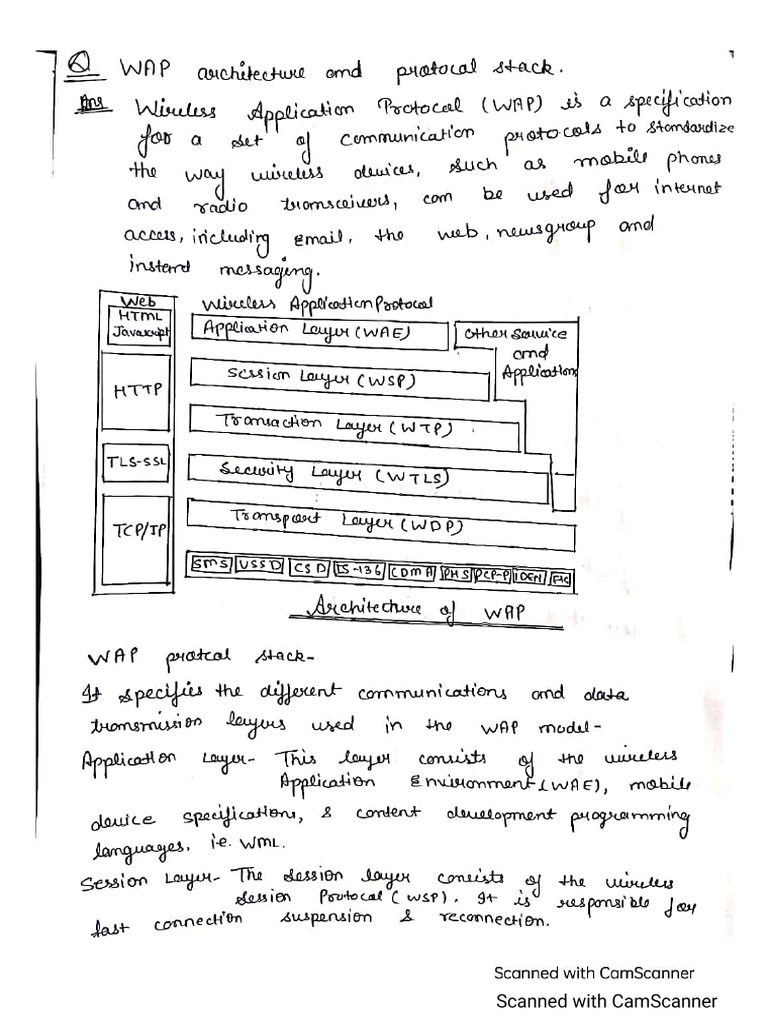 Q WAP architecture and protocal stack.
Ans Wireless Application Protocal (WAP) is a specification
for a set of communication protocals to standardize
the way wireless devices, such as mobile phones
and radio transceivers, can be used for internet
access, including Email, the web, newsgroup and
instand messaging.
Web Wireless Application Protocal
HTML
Javascript
Application Layer (WAE)
Other Service
and
Application
Session Layer (WSP)
HTTP
Transaction Layer (WTP)
TLS-SSL
Security Layer (WTLS)
TCP/IP
Transport Layer (WDP)
SMS USSD CSD IS-136 CDMA PHS PCP-P IDEN
Architecture of WAP
WAP protcal stack-
It specifies the different communications and data
transmission layers used in the WAP model-
Application Layer- This layer consists of the wireless
Application Environment (WAE), mobile
device specifications, & content development programming
languages, i.e. WML.
Session Layer- The session layer consists of the wireless
session Protocal (WSP). It is responsible for
fast connection suspension & reconnection.
Scanned with CamScanner
Scanned with CamScanner